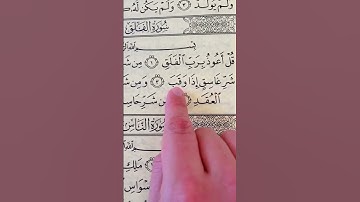 وَلَمْ يُولَدْ ٣ وَلَمْ يَكُن لَّهُ
سُورَةُ الْفَلَقِ
بِسْمِ اللَّهِ
قُلْ أَعُوذُ بِرَبِّ الْفَلَقِ ١ مِن شَ
شَرِّ غَاسِقٍ إِذَا وَقَبَ ٣ وَمِن شَ
الْعُقَدِ مِن شَرِّ حَاسِ
سُورَةُ النَّاسِ
مَلِكِ